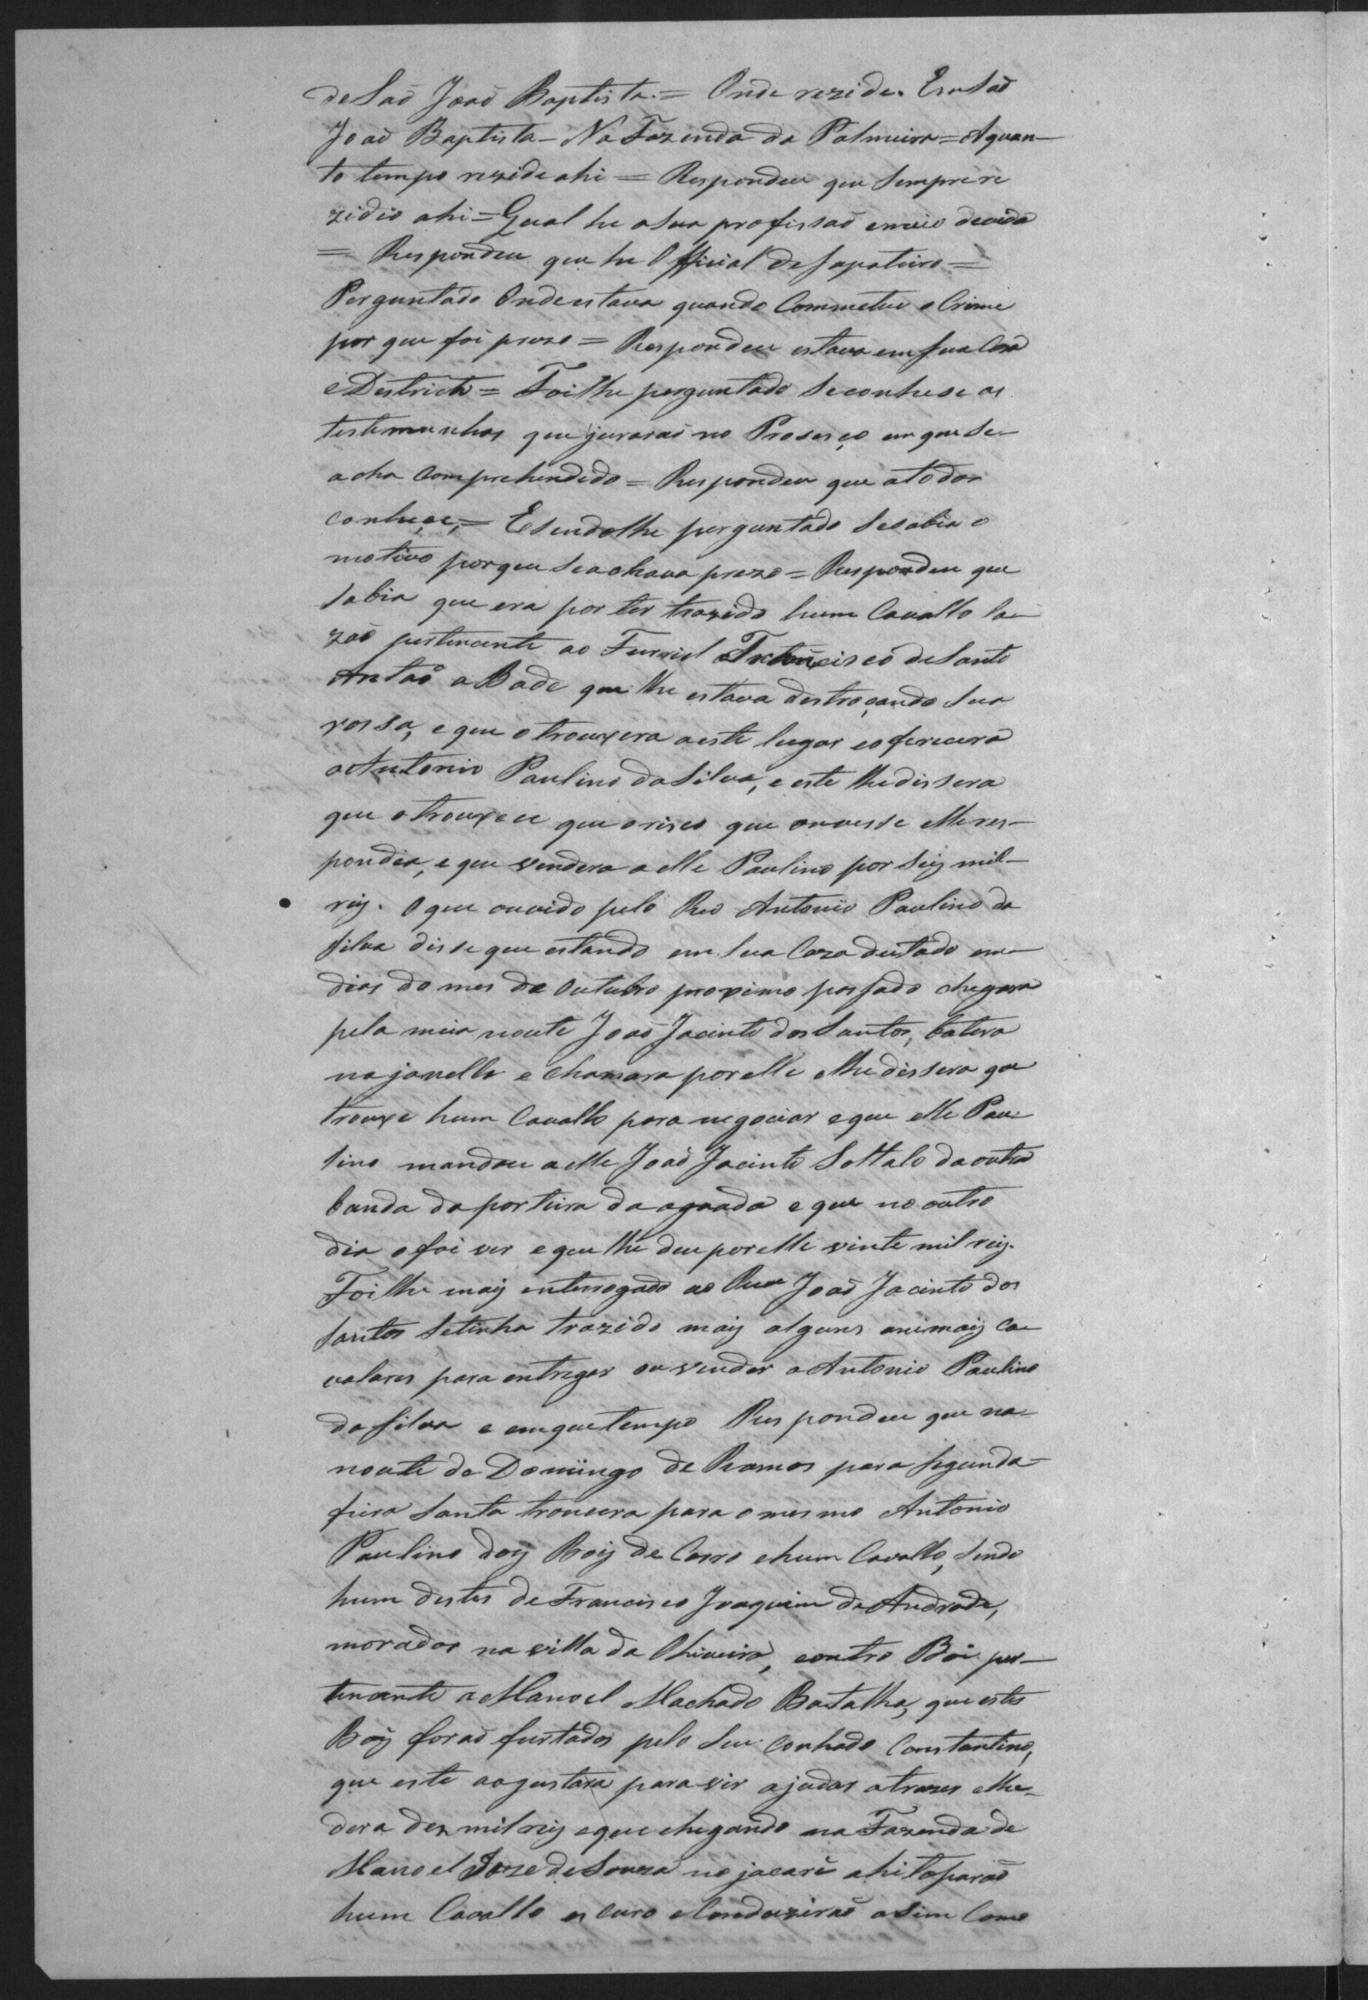 de Saõ Joaõ Baptista. = Onde rezide. Em Saõ
Joaõ Baptista - Na Fazenda da Palmeira = A quan-
to tempo rezide ahi = Respondeu que sempre re
zidio ahi = Qual he a sua profissaõ e meio de vida
= Respondeu que he Official de sapateiro =
Perguntado Onde estava quando Commeteu o Crime
por que foi prezo = Respondeu estava em sua Casa
e Destricto = Foi lhe perguntado se conhese as
testemunhas que juraraõ no Proseço em que se
acha Comprehendido = Respondeu que a todos
conheçe, = E sendo lhe perguntado se sabia o
motivo porque se achava prezo = Respondeu que
sabia que era por ter trazido hum Cavallo la
zaõ pertencente ao Furriel Francisco de Santo
Antaõ aBade que lhe estava destroçando sua
rossa, e que o trouxera a este lugar e o ferecera
a Antonio Paulino da Silva, e este lhe dissera
que o trouxece que o risco que ouvesse elle res-
pondia, e que vendera a elle Paulino por seis mil-
reis. O que ouvido pelo Reo Antonio Paulino da
Silva disse que estando em sua Caza deitado em
dias do mes de Outubro proximo passado chegara
pela meia noute Joaõ Jacinto dos Santos, batera
na janella e chamara por elle e lhe dissera que
trouxe hum Cavallo para negociar e que elle Pau
lino mandou a elle Joaõ Jacinto soltalo da outra
banda da porteira da aguada e que no outro
dia o foi ver e que lhe deu por elle vinte mil reis.
Foi lhe mais enterrogado ao Reu Joaõ Jacinto dos
Santos se tinha trazido mais alguns animais ca
valares para entregar ou vender a Antonio Paulino
da Silva e em que tempo Respondeu que na
noute de Domingo de Ramos para segunda-
feira Santa troucera para o mesmo Antonio
Paulino dois Bois de Carro e hum Cavallo, sendo
hum destes de Francisco Joaquim de Andrade,
morador na villa da Oliveira, e outro Boi per-
tencente a Manoel Machado Batalha, que estes
Bois foraõ furtados pelo seu Conhado Constantino,
que este o ajustara para vir ajudar a trazer e lhe
dera dez mil reis e que chegando na Fazenda de
Manoel Joze de Souza no jacaré ahi toparaõ
hum Cavallo escuro e Conduziraõ asim Como